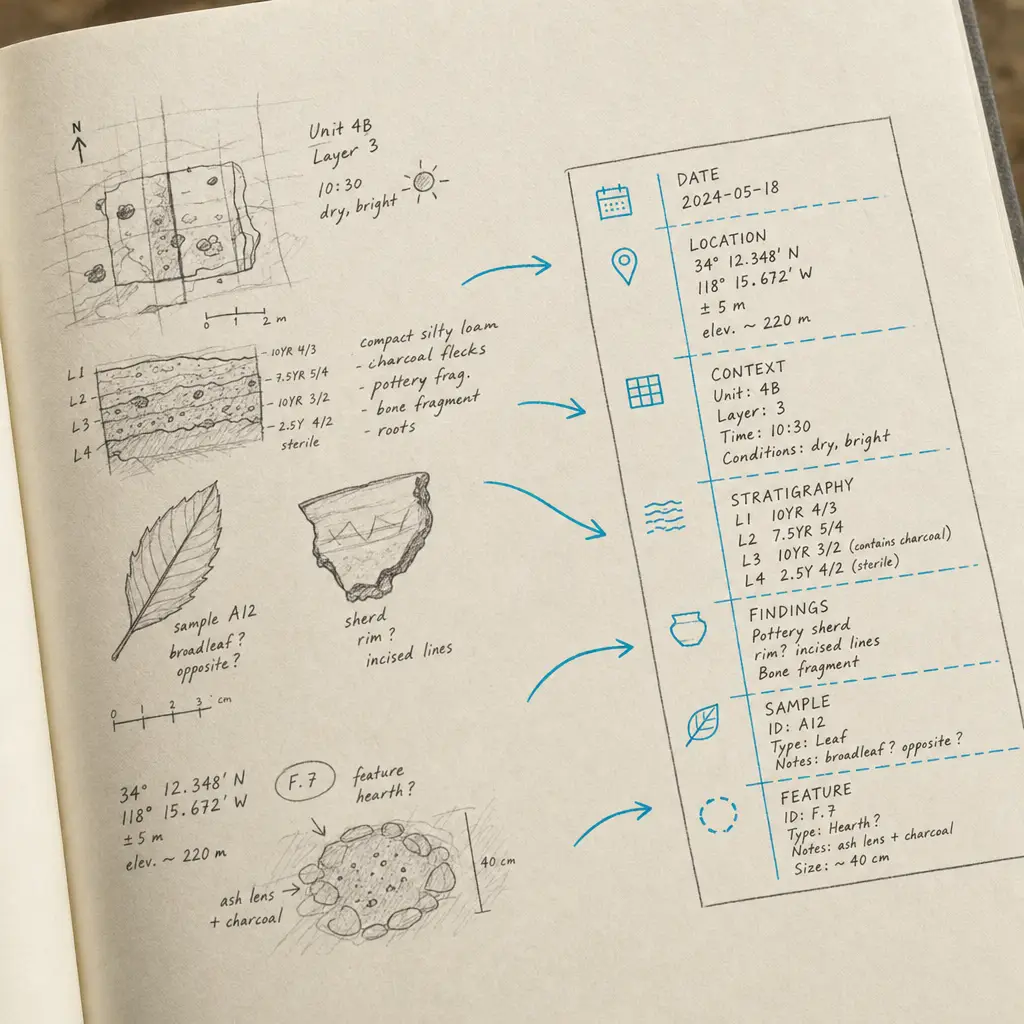 N
Unit 4B
Layer 3
10:30
dry, bright
0 1 2 m
L1
L2
L3
L4
10YR 4/3
7.5YR 5/4
10YR 3/2
2.5Y 4/2
sterile
compact silty loam
- charcoal flecks
- pottery frag.
- bone fragment
- roots
sample A12
broadleaf?
opposite?
sherd
rim?
incised lines
0 1 2 3 cm
34° 12.348' N
118° 15.672' W
± 5 m
elev. ~ 220 m
F.7
feature
hearth?
ash lens
+ charcoal
40 cm
DATE
2024-05-18
LOCATION
34° 12.348' N
118° 15.672' W
± 5 m
elev. ~ 220 m
CONTEXT
Unit: 4B
Layer: 3
Time: 10:30
Conditions: dry, bright
STRATIGRAPHY
L1 10YR 4/3
L2 7.5YR 5/4
L3 10YR 3/2 (contains charcoal)
L4 2.5Y 4/2 (sterile)
FINDINGS
Pottery sherd
rim? incised lines
Bone fragment
SAMPLE
ID: A12
Type: Leaf
Notes: broadleaf? opposite?
FEATURE
ID: F.7
Type: Hearth?
Notes: ash lens + charcoal
Size: ~ 40 cm